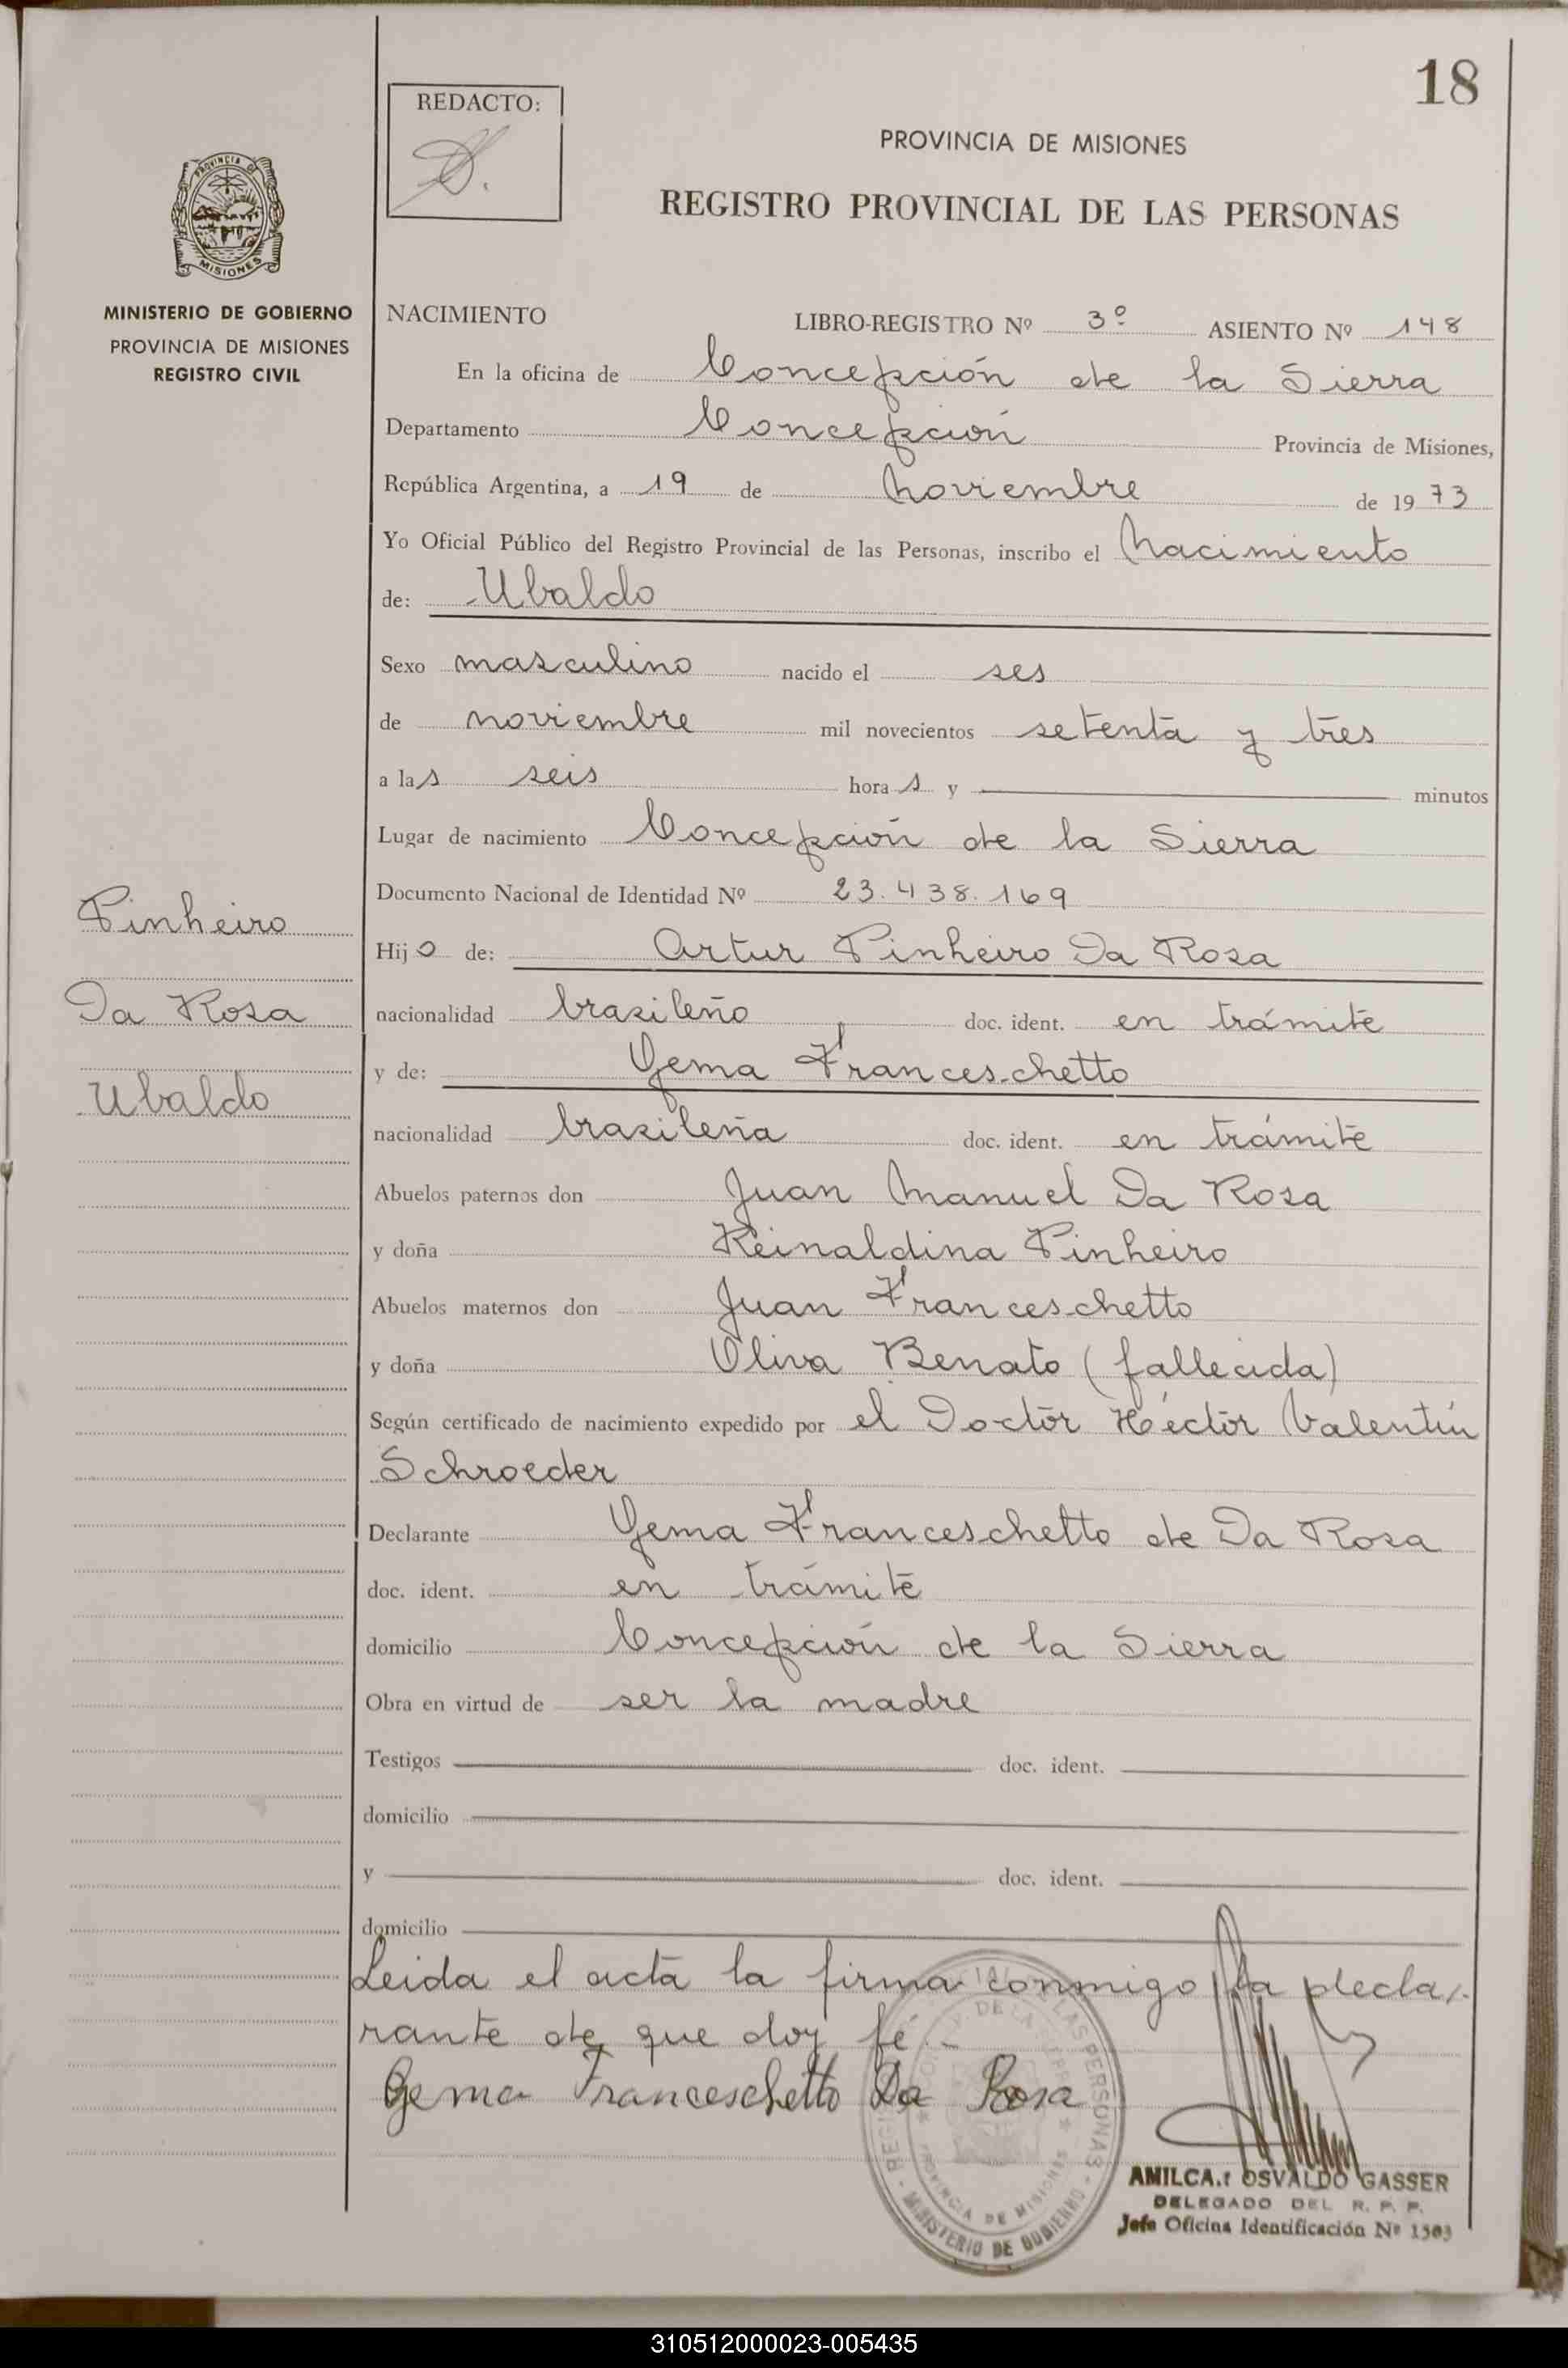 18
REDACTO:
PROVINCIA DE MISIONES
REGISTRO PROVINCIAL DE LAS PERSONAS
PROVINCIA DE
MISIONES
MINISTERIO DE GOBIERNO
PROVINCIA DE MISIONES
REGISTRO CIVIL
NACIMIENTO LIBRO-REGISTRO Nº 3º ASIENTO Nº 148
En la oficina de Concepción de la Sierra
Departamento Concepción Provincia de Misiones,
República Argentina, a 19 de noviembre de 1973
Yo Oficial Público del Registro Provincial de las Personas, inscribo el nacimiento
de: Ubaldo
Sexo masculino nacido el ses
de noviembre mil novecientos setenta y tres
a las seis horas y minutos
Lugar de nacimiento Concepción de la Sierra
Documento Nacional de Identidad Nº 23.438.169
Pinheiro
Da Rosa
Ubaldo
Hijo de: Artur Pinheiro Da Rosa
nacionalidad brasileño doc. ident. en trámite
y de: Gema Franceschetto
nacionalidad brasileña doc. ident. en trámite
Abuelos paternos don Juan Manuel Da Rosa
y doña Reinaldina Pinheiro
Abuelos maternos don Juan Franceschetto
y doña Oliva Benato (fallecida)
Según certificado de nacimiento expedido por el Doctor Héctor Valentín
Schroeder
Declarante Gema Franceschetto de Da Rosa
doc. ident. en trámite
domicilio Concepción de la Sierra
Obra en virtud de ser la madre
Testigos doc. ident.
domicilio
y doc. ident.
domicilio
Leida el acta la firma conmigo la decla-
rante de que doy fé.-
Gema Franceschetto Da Rosa
PROVINCIA DE MISIONES
MINISTERIO DE GOBIERNO
AMILCAR OSVALDO GASSER
DELEGADO DEL R. P. P.
Jefe Oficina Identificación Nº 1503
310512000023-005435